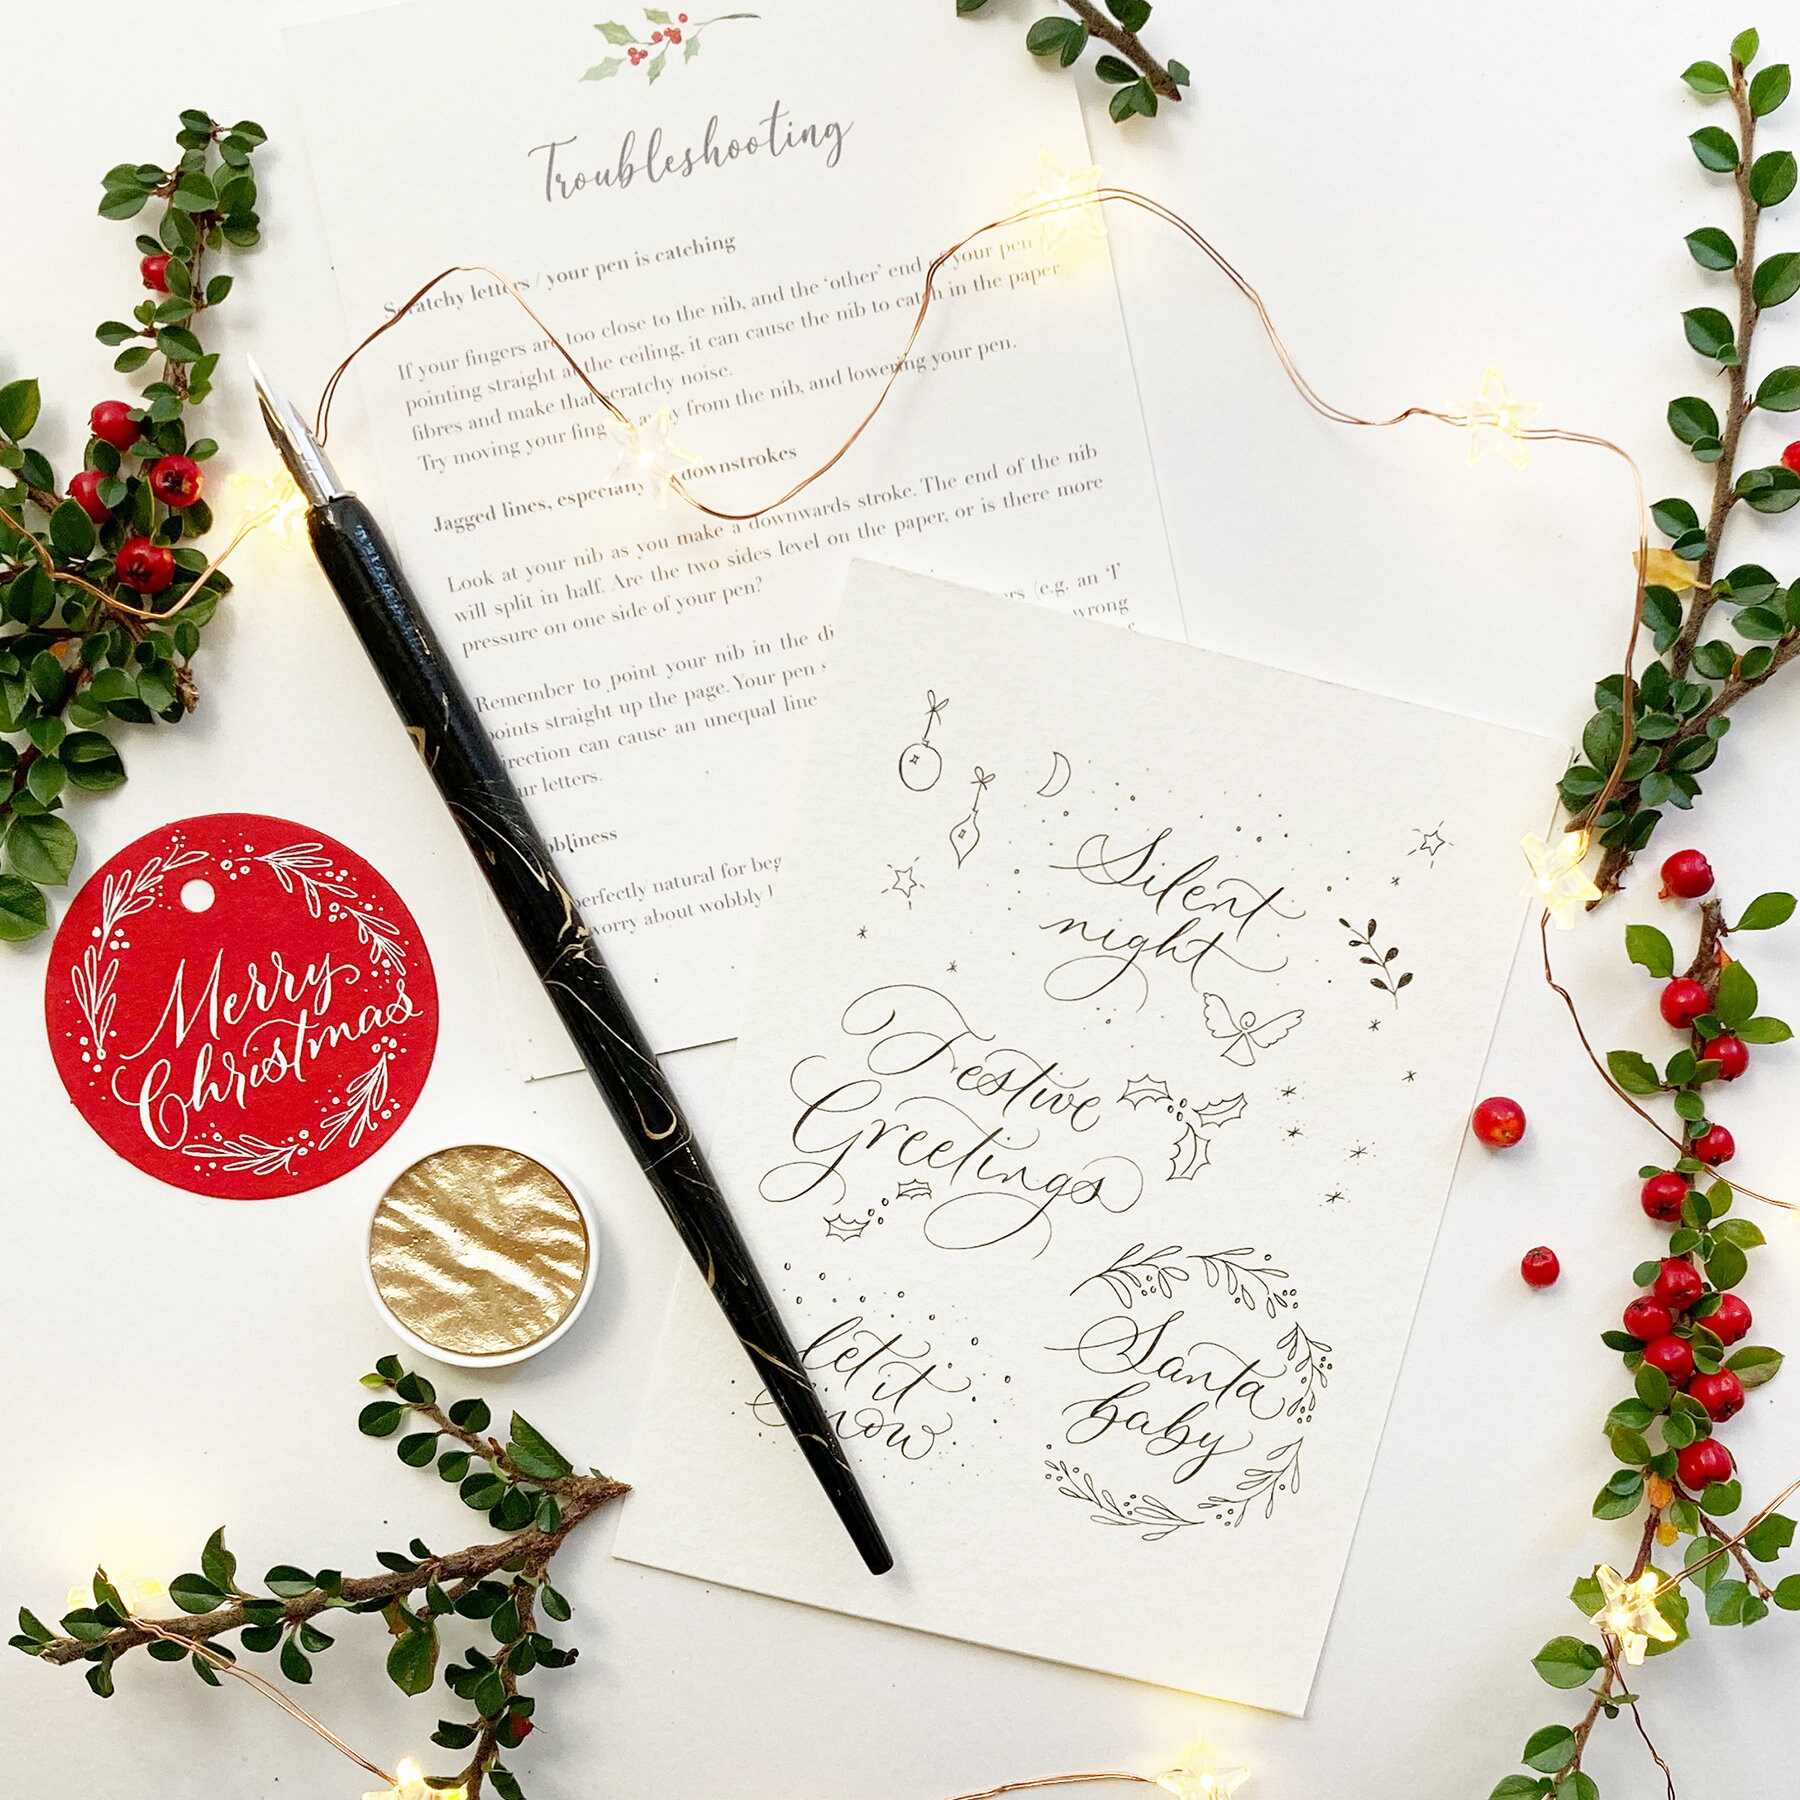 Troubleshooting
Scratchy letters / your pen is catching
If your fingers are too close to the nib, and the 'other' end of your pen
pointing straight at the ceiling, it can cause the nib to catch in the paper
fibres and make that scratchy noise.
Try moving your away from the nib, and lowering your pen.
Jagged lines, especially downstrokes
Look at your nib as you make a downwards stroke. The end of the nib
will split in half. Are the two sides level on the paper, or is there more
pressure on one side of your pen?
(e.g. an 'l'
Remember to point your nib in the
wrong
points straight up the page. Your pen
direction can cause an unequal line
letters.
perfectly natural for
worry about wobbly
Merry
Christmas
Silent
night
Festive
Greetings
let it
snow
Santa
baby